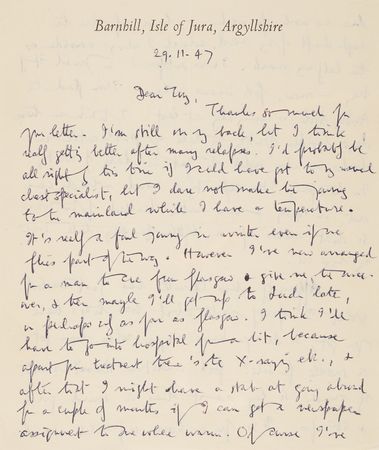 Barnhill, Isle of Jura, Argyllshire
29.11.47
Dear Tony,
Thanks so much for
your letter. I'm still on my back, but I think
really getting better after many relapses. I'd probably be
all right by this time if I could have got to my usual
chest specialist, but I dare not make the journey
to the mainland while I have a temperature.
It's really a foul journey in winter even if one
flies part of the way. However I've now arranged
for a man to come from Glasgow & give me the once-
over, & then maybe I'll get up to London later,
or perhaps only as far as Glasgow. I think I'll
have to go into hospital for a bit, because
apart from treatment there's the X-raying etc., &
after that I might have a stab at going abroad
for a couple of months if I can get a newspaper
assignment to somewhere warm. Of course I've